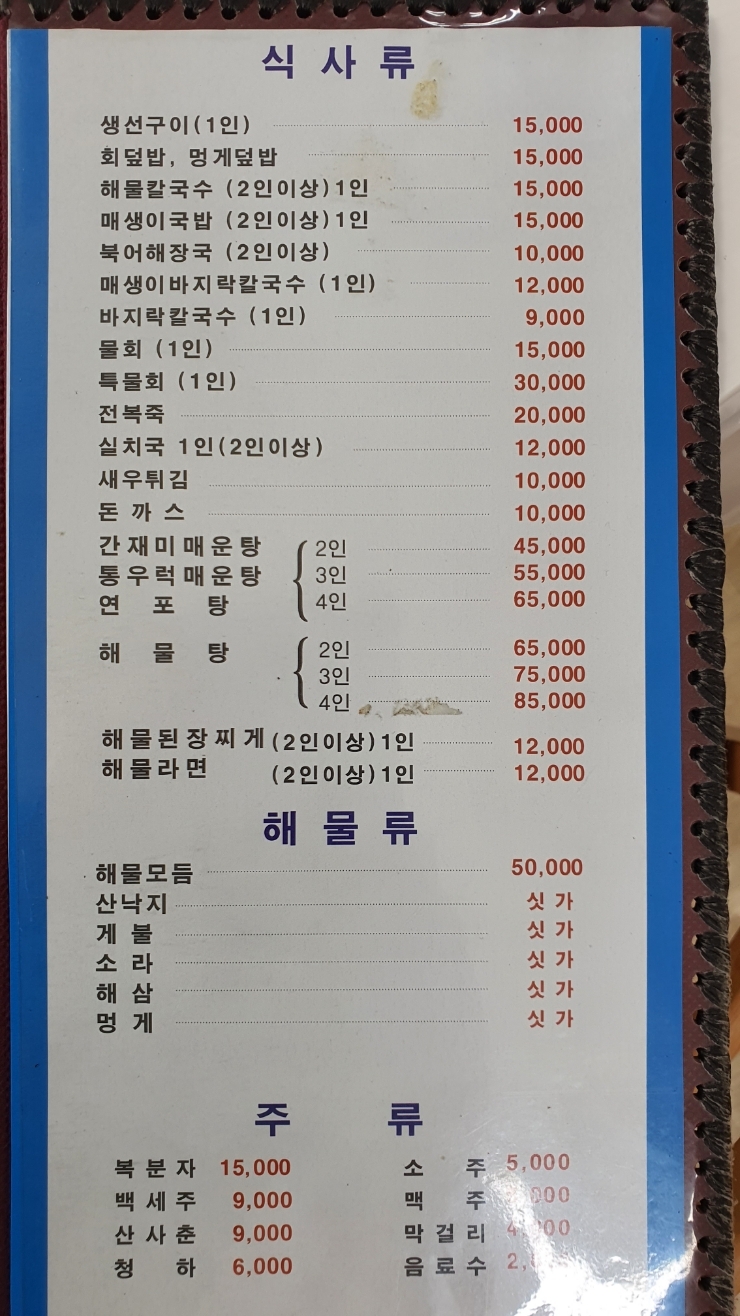 식 사 류
생선구이(1인) 15,000
회덮밥, 멍게덮밥 15,000
해물칼국수 (2인이상)1인 15,000
매생이국밥 (2인이상)1인 15,000
북어해장국 (2인이상) 10,000
매생이바지락칼국수 (1인) 12,000
바지락칼국수 (1인) 9,000
물회 (1인) 15,000
특물회 (1인) 30,000
전복죽 20,000
실치국 1인(2인이상) 12,000
새우튀김 10,000
돈 까 스 10,000
간재미매운탕 2인 45,000
통우럭매운탕 3인 55,000
연 포 탕 4인 65,000
해 물 탕 2인 65,000
3인 75,000
4인 85,000
해물된장찌게(2인이상)1인 12,000
해물라면 (2인이상)1인 12,000
해 물 류
해물모듬 50,000
산낙지 싯 가
게 불 싯 가
소 라 싯 가
해 삼 싯 가
멍 게 싯 가
주 류
복 분 자 15,000 소 주 5,000
백 세 주 9,000 맥 주
산 사 춘 9,000 막 걸 리
청 하 6,000 음 료 수